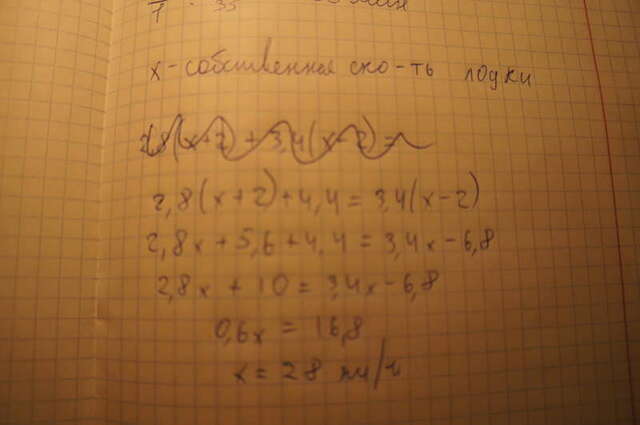 x - собственная ско-ть лодки
2,8(x+2) + 3,4(x-2) =
2,8(x+2)+4,4=3,4(x-2)
2,8x+5,6+4,4=3,4x-6,8
2,8x+10=3,4x-6,8
0,6x=16,8
x=28 км/ч